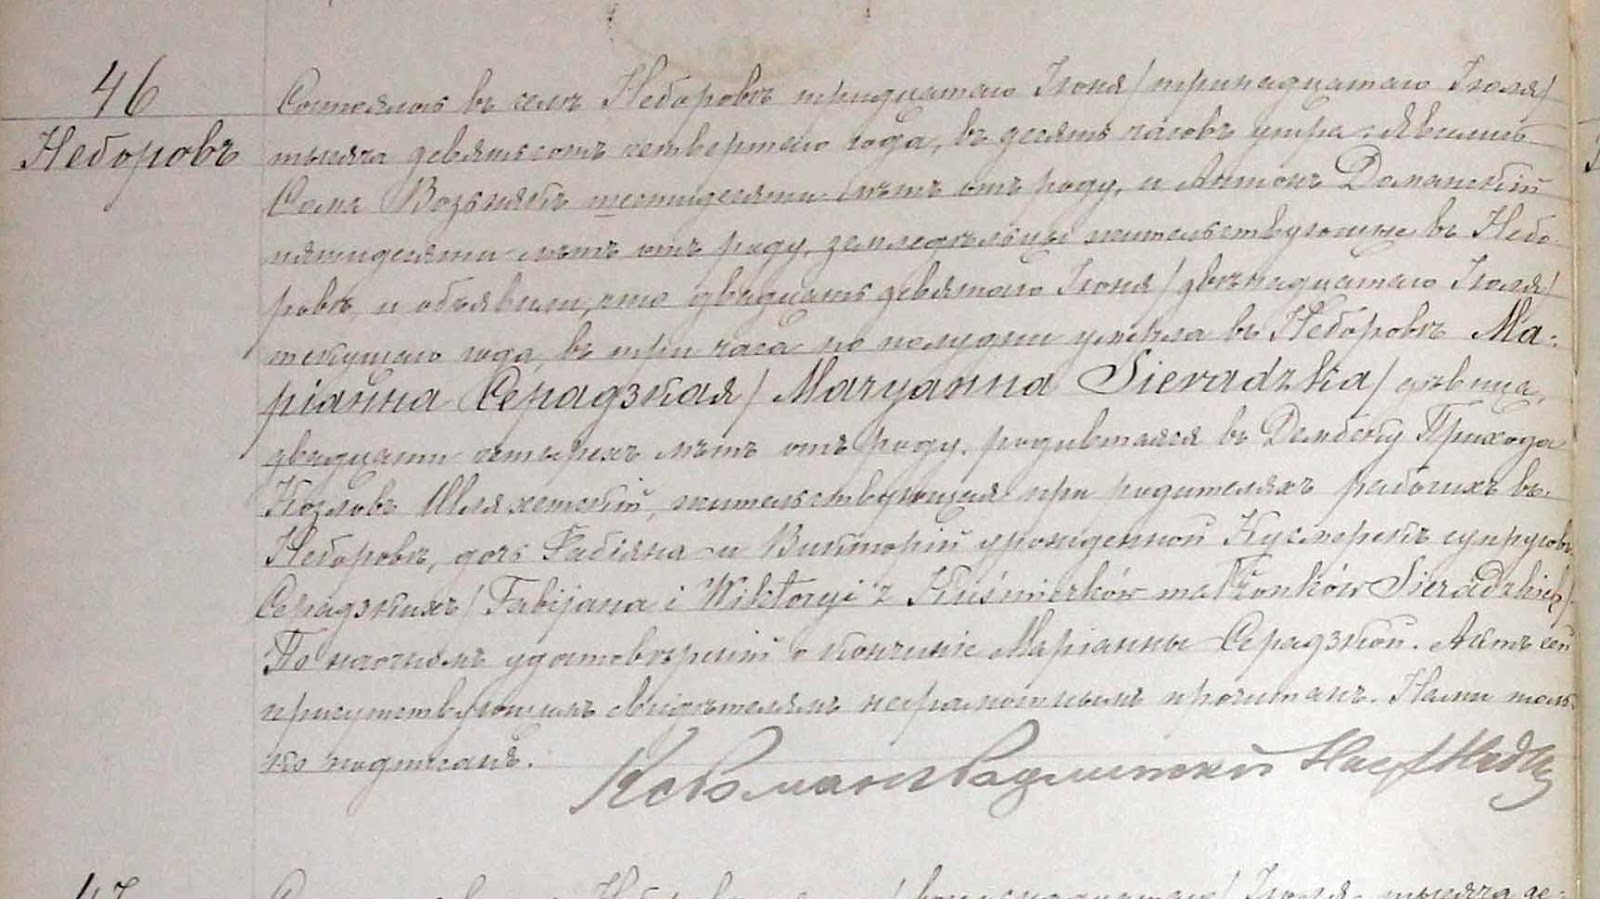 46
Неборовъ
Состоялось въ селѣ Неборовѣ тридцатаго Іюня / тринадцатаго Іюля /
тысяча девятьсотъ четвертаго года, въ десять часовъ утра. Явились
Возьнякъ шестидесяти лѣтъ отъ роду, и Антонъ Доманскій
пятидесяти лѣтъ отъ роду, земледѣльцы жительствующіе въ Небо-
ровѣ, и объявили, что двадцать девятаго Іюня / двѣнадцатаго Іюля /
текущаго года, въ три часа по полудни умерла въ Неборовѣ Ма-
ріанна Серадзкая / Maryanna Sieradzka / дѣвица,
двадцати четырехъ лѣтъ отъ роду, родившаяся въ Дембску Прихода
Козловъ Шляхетскій, жительствующая при родителяхъ рабочихъ въ
Неборовѣ, дочь Фабіяна и Викторіи урожденной Кусмерекъ супруговъ
Серадзкихъ / Fabijana i Wiktoryi z Kuśmierków małżonków Sieradzkich /.
По наочномъ удостовѣреніи о кончинѣ Маріанны Серадзкой. Актъ сей
присутствующимъ свидѣтелямъ неграмотнымъ прочитанъ. Нами толь-
ко подписанъ.
47